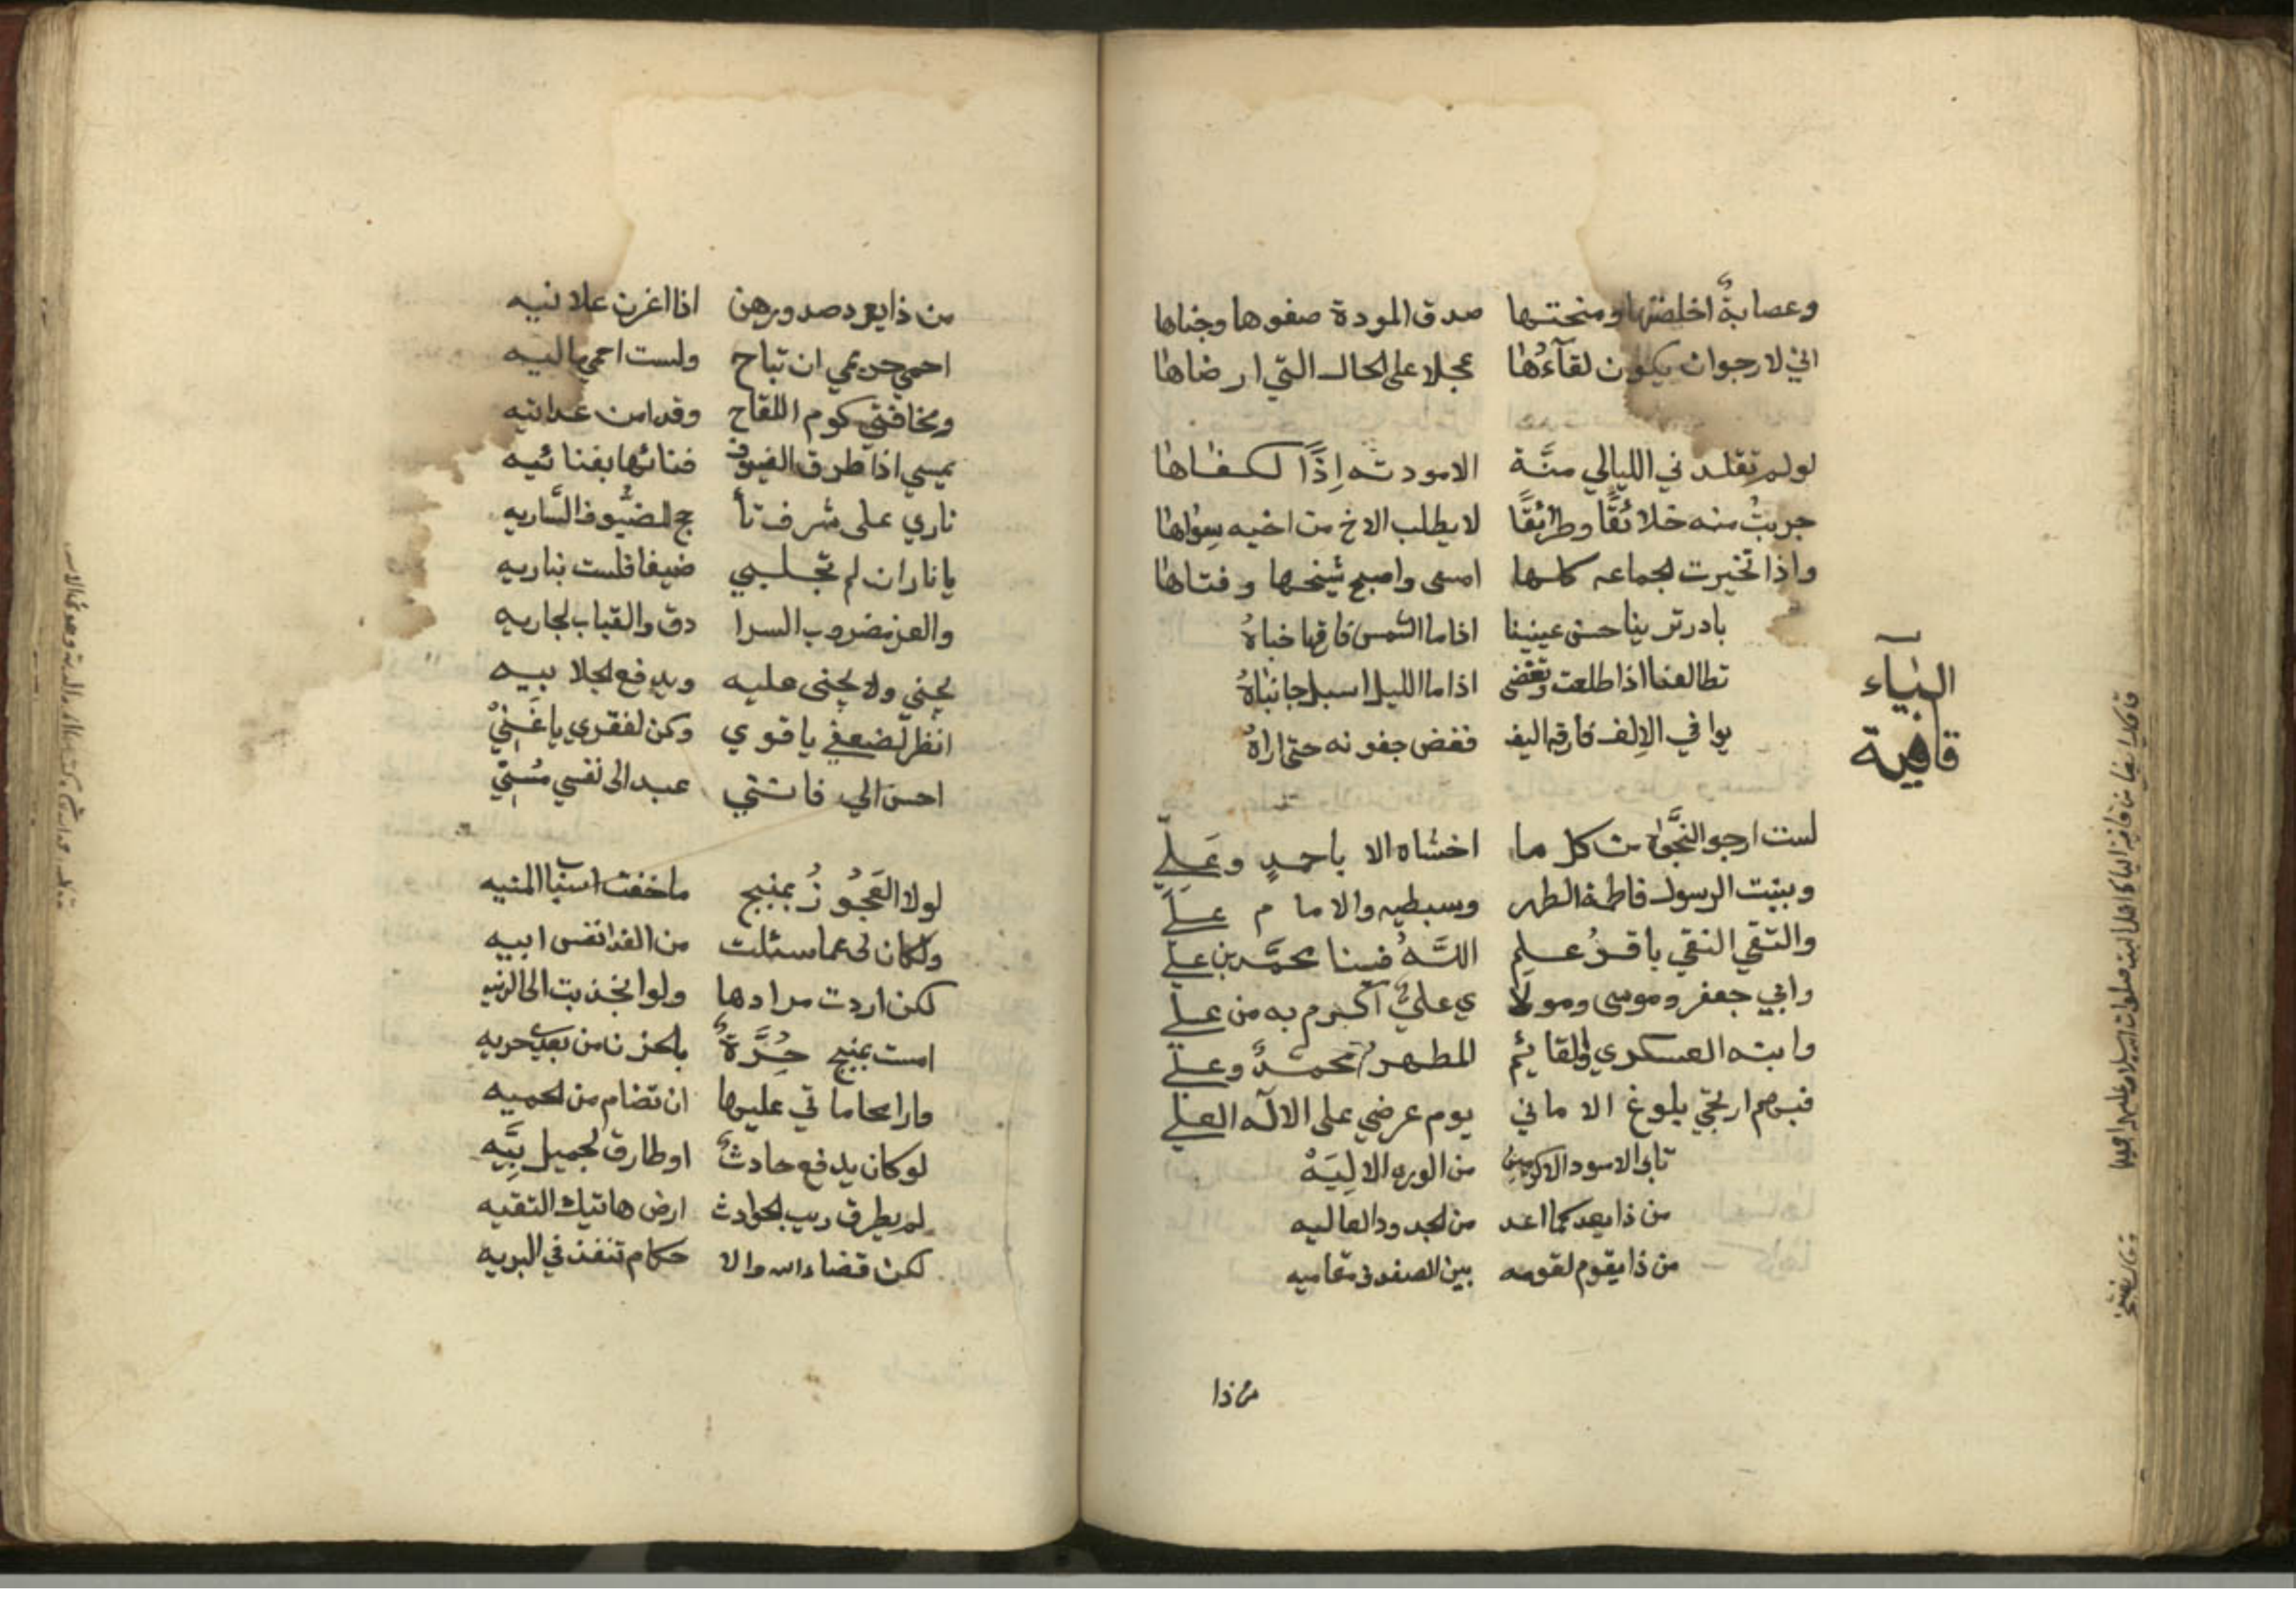 وعصابةٌ اخلصتها ومنحتها صدق المودة صفوها وجناها
اني لارجوان يكون لقآءُها عجلا على الحال التي ارضاها
لولم تقلد ني الليالي منَّة الامودته اِذًا لكفاها
جربتُ منه خلائقًا وطرائقًا لايطلب الاخ من اخيه سِواها
واذا تخيرت الجماعه كلها امسى واصبح شيخها وفتاها
بادرتر يناحسن عينينا اذاما الشمس فارقها خباهُ
تطالعنا اذا طلعت وتغضى اذاما الليل اسبل جانباهُ
يوافي الاِلف فارقه اليف فغض جفونه حتى اراهُ
اليآء
قافية
لست ارجو النجَّوة من كل ما اخشاه الا باحمدٍ وعَلِيّ
وببنت الرسول فاطمة الطهر وسبطيه والاما م علي
والتقي النقي باقرُ علم اللهُ فينا محمَّد بن علي
وابي جعفر وموسى ومولا ي عليٌّ اكرم به من علي
وابنه العسكري والقايُم المطهر محمدٌ وعلي
فبهم ارتجي بلوغ الاماني يوم عرضي على الالٓه العلي
تابى الاسود الاكرمين من الوره الالِيَهْ
من ذايعد كما اعد من الجدود العاليه
من ذايقوم لقومه بين الصفوف مقاميه
من ذا
من ذايرد صدورهن اذا اغرن علانيه
احمي حريمي ان تباح ولست احمي ماليه
ومخافتي كوم اللقاح وقد امن عداتيه
يمسي اذا طرق الضيوف فنائها بفنائيه
ناري على شرف تأ جج للضُّيوف السَّاريه
يا ناران لم تجلبي ضيفا فلست بناريه
والعز مضروب السرا دق والقباب الجاريه
يجني ولا يجنى عليه ويدفع الجلا بيه
انظر لضعفي ياقوي وكن لفقري ياغَنِيْ
احسن الي فانني عبد الى نفسي مُسِيّ
لولا العَجُوزُ بمنبج ماخفت اسباب المنيه
ولكان لى عما سئلت من الفدا نفس ابيه
لكن اردت مرادها ولو انجذبت الى الدنيه
امست بمنبج حُرَّةٌ بالحزن من بعدي حريه
وارا محاماتي عليها ان تضام من الحميه
لوكان يدفع حادثٌ اوطارق لجميل بِيَّه
لم يطرق ريب الحوادث ارض هاتيك التقيه
لكن قضاءالله والا حكام تنفذ في البريه